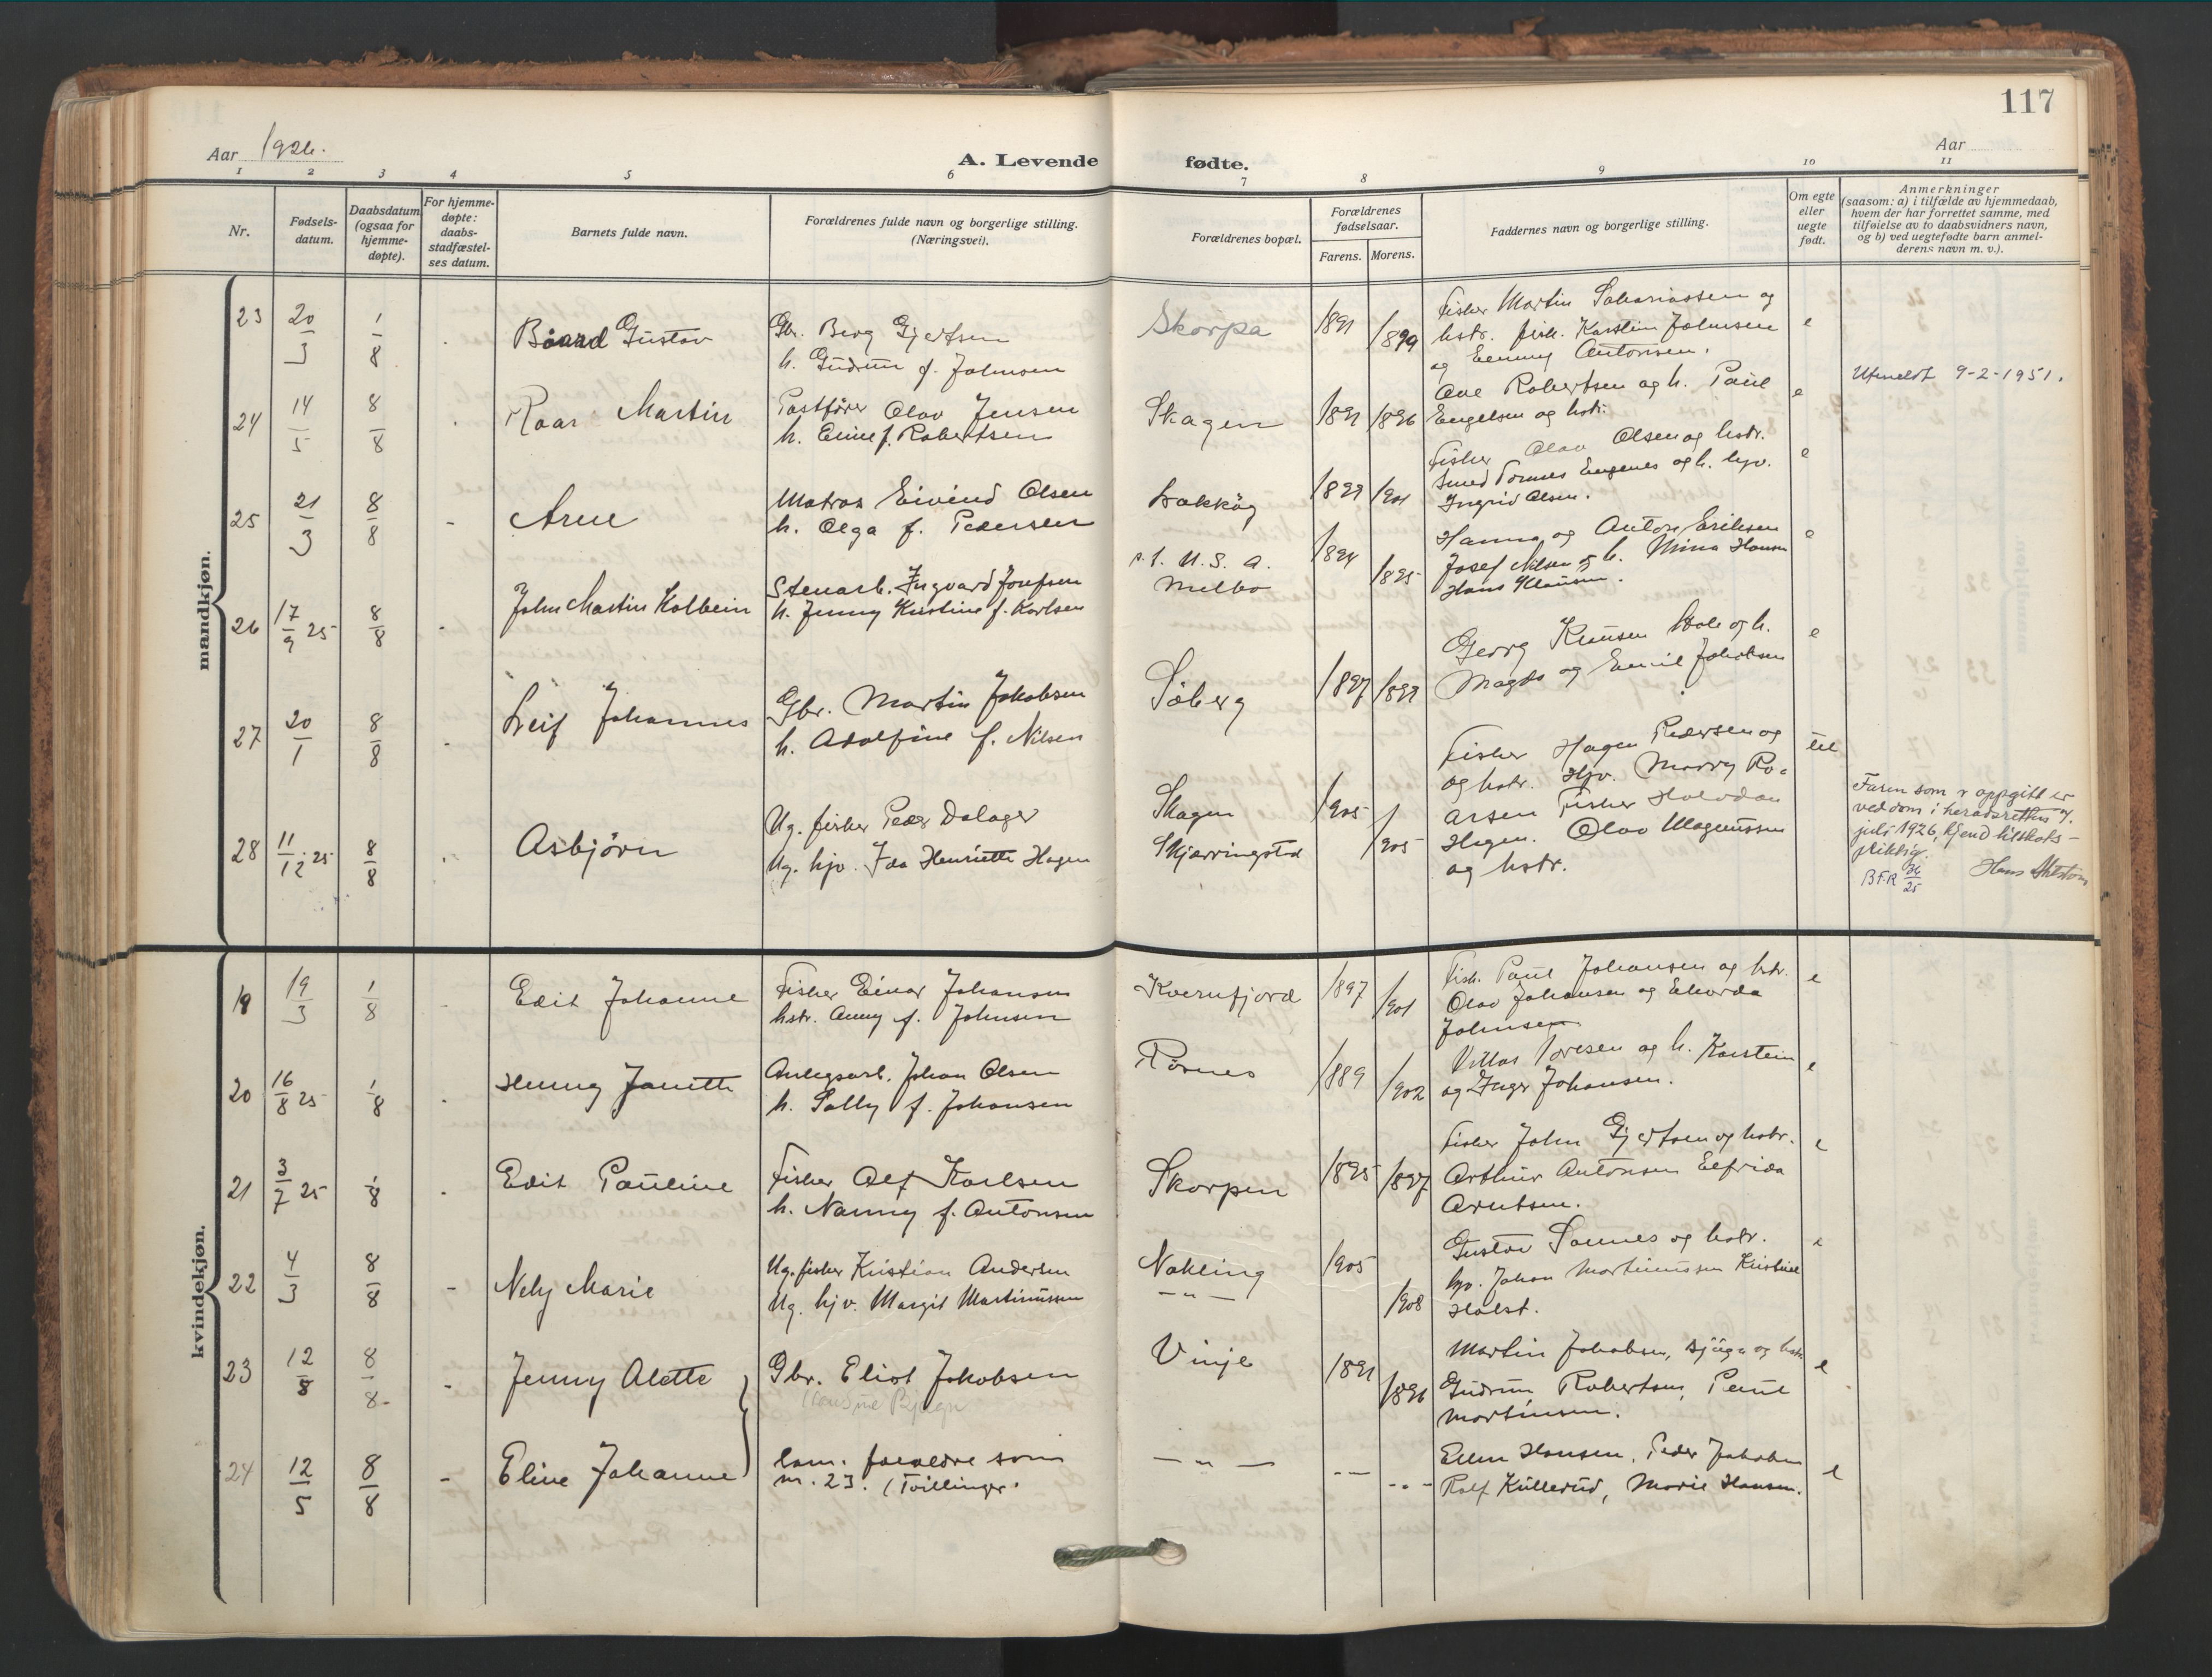 117
Aar 1926.
A. Levende fødte.
Aar
1 2 3 4 5 6 7 8 9 10 11
Nr.
Fødsels-
datum.
Daabsdatum
(ogsaa for
hjemme-
døpte).
For hjemme-
døpte:
daabs-
stadfæstel-
ses datum.
Barnets fulde navn.
Forældrenes fulde navn og borgerlige stilling.
(Næringsvei).
Forældrenes bopæl.
Forældrenes
fødselsaar.
Farens. Morens.
Faddernes navn og borgerlige stilling.
Om egte
eller
uegte
født.
Anmerkninger
(saasom: a) i tilfælde av hjemmedaab,
hvem der har forrettet samme, med
tilføielse av to daabsvidners navn,
og b) ved uegtefødte barn anmel-
derens navn m. v.).
mandkjøn.
23 20/3 1/8 Baard Gustav
Gbr. Berg Gjertsen
h. Gudrun f. Johnsen
Skorpa 1891 1899
Fisker Martin Sakariassen og
hstr. fisk. Karstein Johnsen
og Emmy Antonsen.
e
24 14/5 8/8 Roar Martin
Postfører Olav Jensen
h. Emine f. Robertsen
Skagen 1891 1896
Ove Robertsen og h. Paul
Engelsen og hstr.
e
Utmeldt 9-2-1951.
25 21/3 8/8 - Arne
Matros Eivind Olsen
h. Olga f. Pedersen
1901
Fisker Olav Olsen og hstr.
Smed og h. hjv.
Ingrid Olsen.
e
26 17/9 25 8/8 John Martin Kolbein
Stenarb. Ingvard Josefsen
h. Jenny Kristine f. Karlsen
p.t. U.S.A.
Melbo
1894 1895
Hanna og Anton Eriksen
Josef Nilsen og h. Mina Hansen
Hans Klausen.
e
27 20/1 8/8 Leif Johannes
Gbr. Martin Jakobsen
h. Adolfine f. Nilsen
Søberg 1897 1899
Georg Knutsen Hole og h.
Magda og Emil Jakobsen
e
28 11/12 25 8/8 Asbjørn
Ug. fisker Peder Dalager
Ug. hjv. Ida Henriette Hagen
Skagen
Skjærringstad
1905 1905
Fisker Hagen Pedersen og
og hstr. Hjv. Marry Ro-
arsen Fisker Halvdan
Hagen. Olav Magnussen
og hstr.
Faren som r oppgitt er
ved dom i heradsretten 7.
juli 1926, kjend tilskots-
pliktig.
B.F.R 36/25
kvindekjøn.
19 19/3 1/8 Edit Johanne
Fisker Einar Johansen
hstr. Anny f. Johnsen
Kvernfjord 1897 1901
Fisk. Paul Johansen og hstr.
Olav Johansen og
Johnsen
e
20 16/8 25 1/8 Henny Janette
Anlegsarb. Johan Olsen
h. Sally f. Johansen
Rørnes 1889 1902
og h. Karstein
og Inger Johansen.
e
21 3/7 25 1/8 Edit Pauline
Fisker Alf Karlsen
h. Nanny f. Antonsen
Skorpen 1895 1897
Fisker John Gjertsen og hstr.
Arthur Antonsen Elfrida
Arntsen.
e
22 4/3 8/8 - Nelly Marie
Ug. fisker Kristian Andersen
Ug. hjv. Margit Martinussen
Nakling
- " -
1905 1908
Gustav Sannes og hstr.
hjv. Johan Martinussen Kristine
Holst.
e
23 12/8 8/8 - Jenny Alette
Gbr. Eliot Jakobsen
Vinje 1891 1896
Martin Jakobsen, og hstr
Gudrun Robertsen, Paul
Martinsen.
e
24 12/5 8/8 - Eline Johanne
Sam. forældre som
nr. 23. (Tvillinger.
- " - -"- -"-
Ellen Hansen, Peder Jakobsen
Rolf Kullerud, Marie Hansen.
e